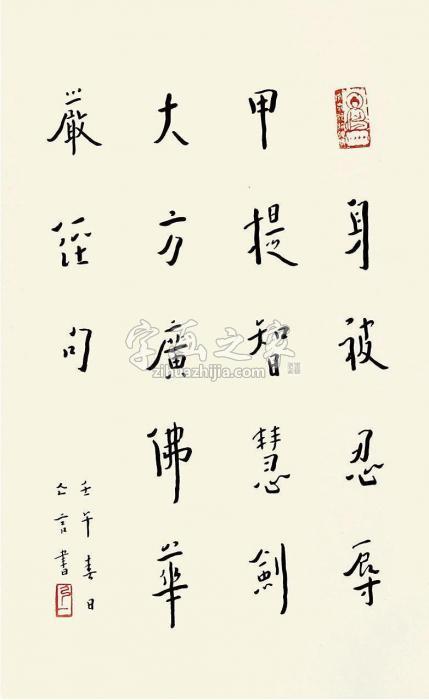 身被忍辱
甲提智慧劍
大方廣佛華
嚴經句
壬午春日
言書
字画之家
zihuazhijia.com